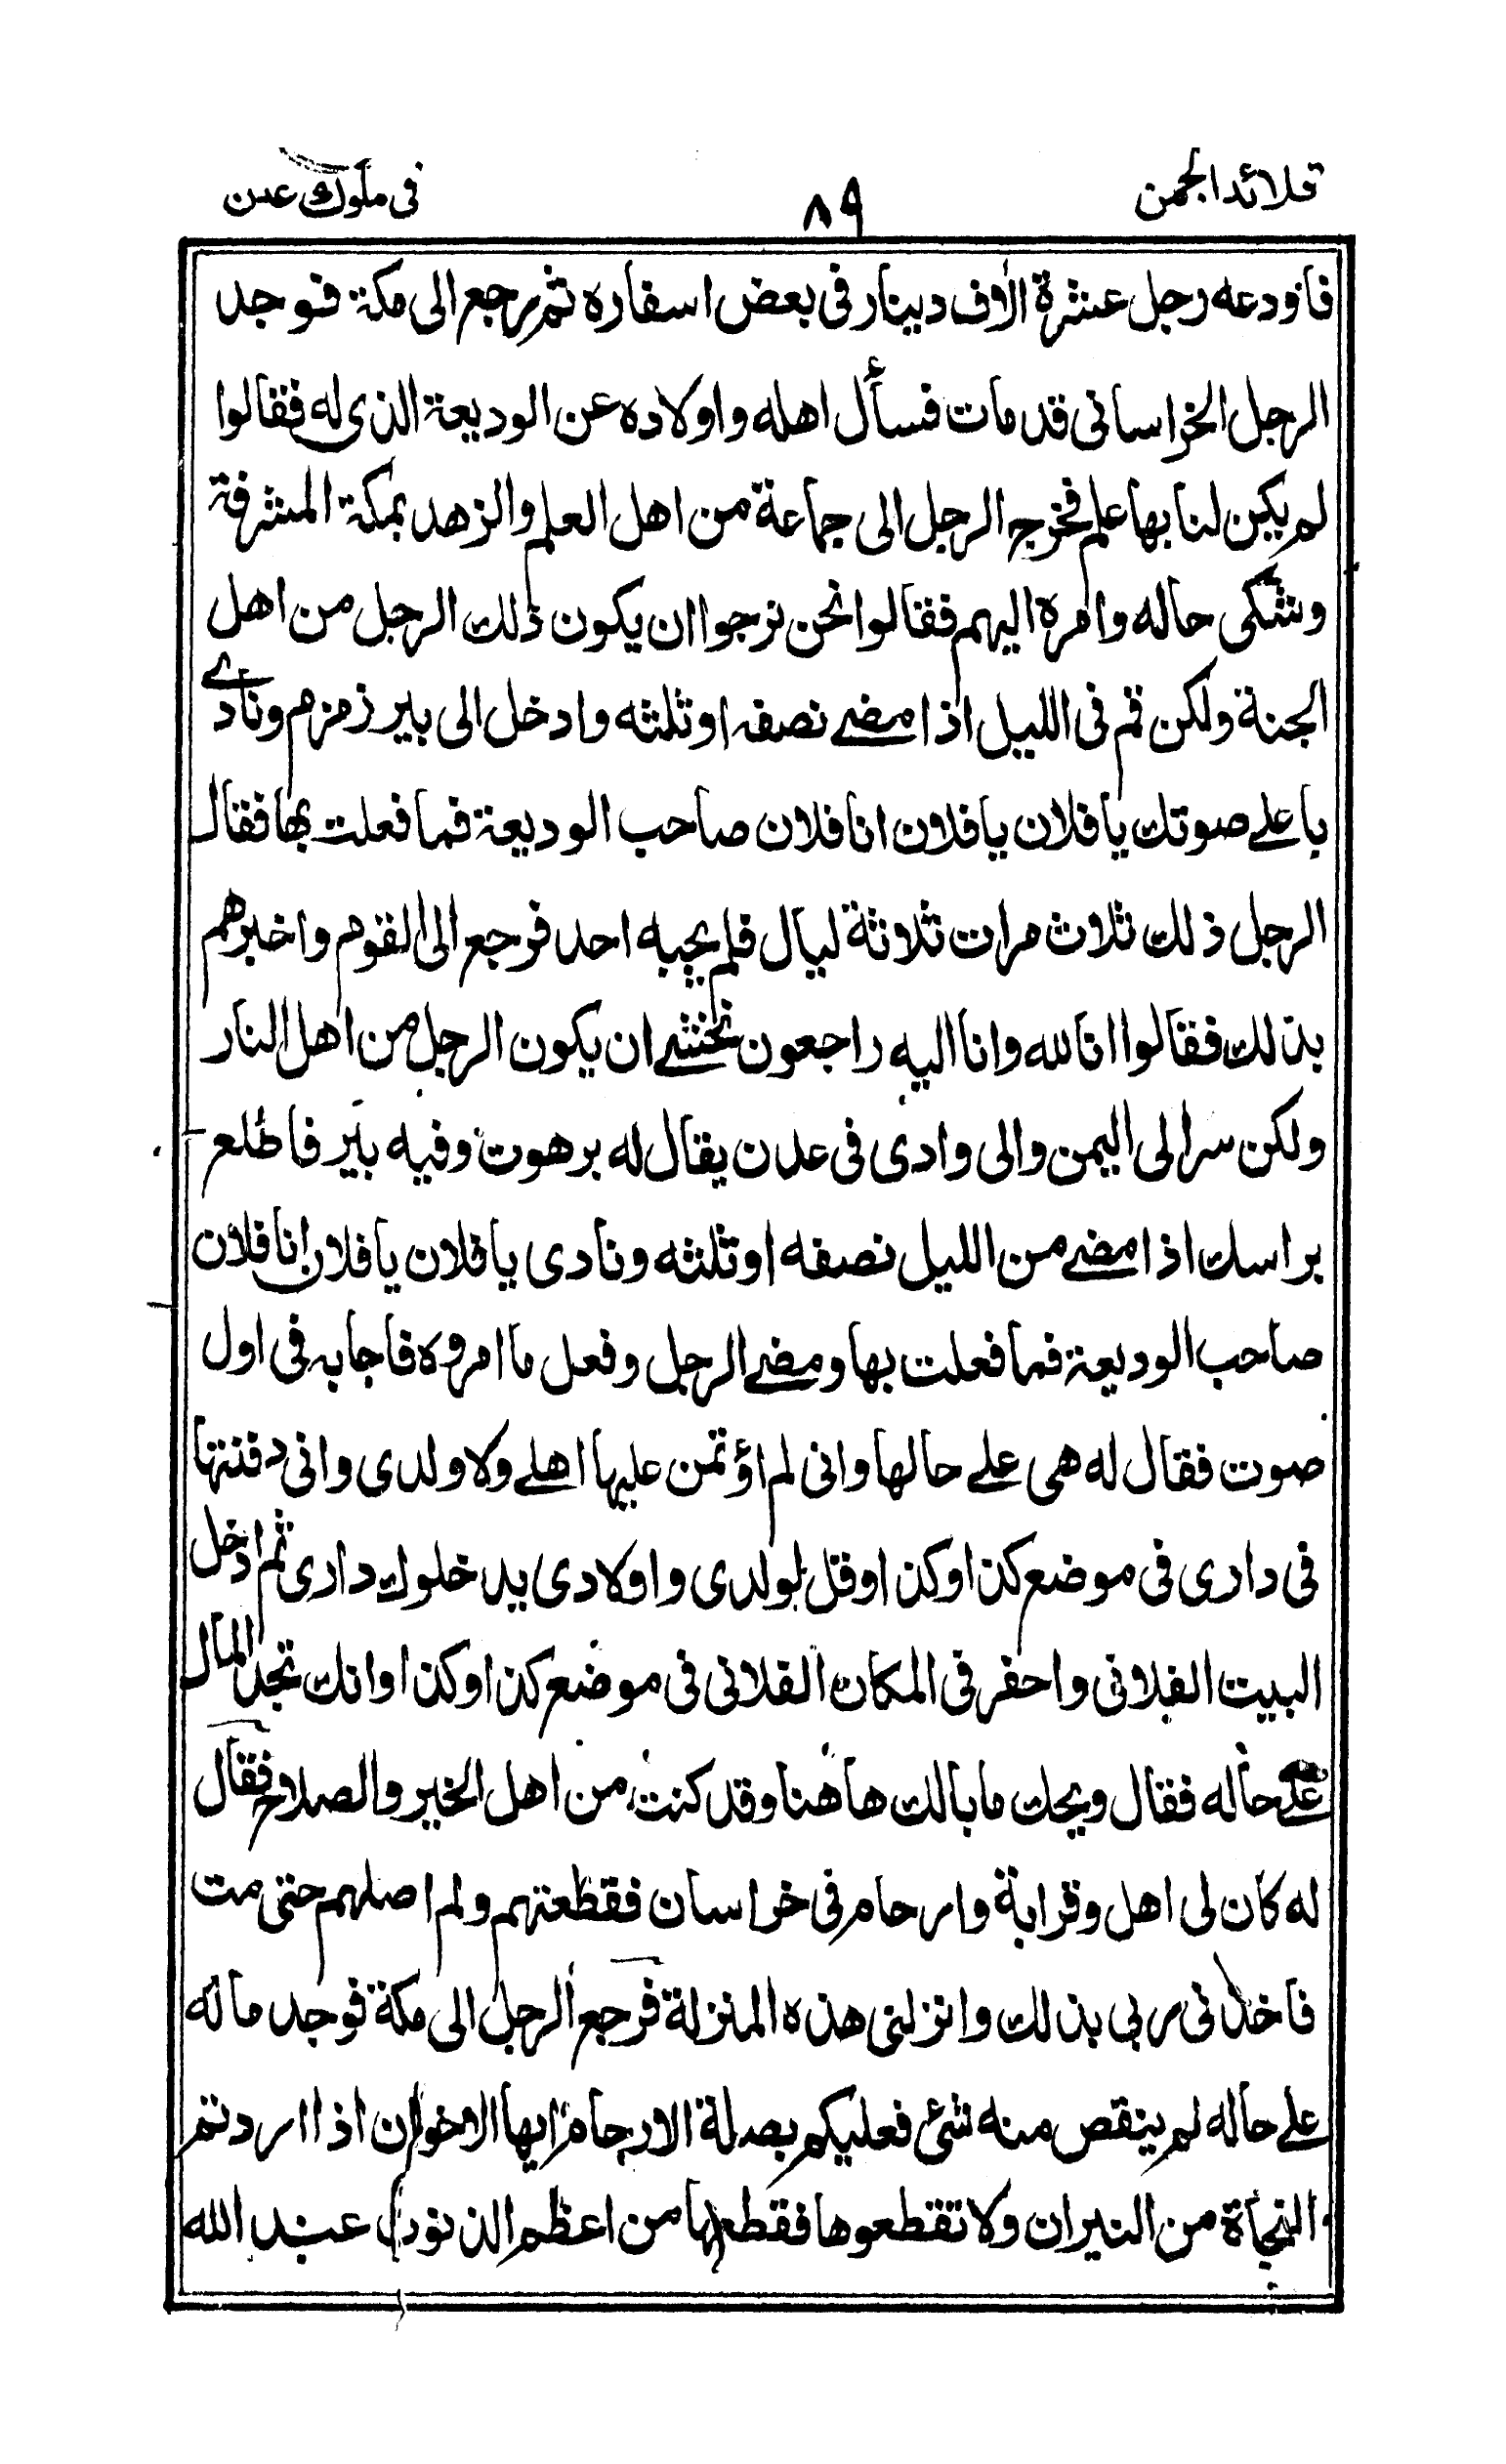 قلائد الجمن ٨٩ فى ملوك عدن
فاودعه رجل عشرة الاف دينار فى بعض اسفاره ثم رجع الى مكة فوجد
الرجل الخراسانى قد مات فسأل اهله واولاده عن الوديعة الذى له فقالوا
لم يكن لنا بها علم فخرج الرجل الى جماعة من اهل العلم والزهد بمكة المشرفة
وشكى حاله وامره اليهم فقالوا نحن نرجوا ان يكون ذلك الرجل من اهل
الجنة ولكن قم فى الليل اذا مضے نصفه اوثلثه وادخل الى بير زمزم ونادے
باعلے صوتك يا فلان يا فلان انا فلان صاحب الوديعة فما فعلت بها فقال
الرجل ذلك ثلاث مرات ثلاثة ليال فلم يجبه احد فرجع الى القوم واخبرهم
بذلك فقالوا انا لله وانا اليه راجعون نخشے ان يكون الرجل من اهل النار
ولكن سر الى اليمن والى وادى فى عدن يقال له برهوت وفيه بير فاطلع
براسك اذا مضے من الليل نصفه اوثلثه ونادى يا فلان يا فلان انا فلان
صاحب الوديعة فما فعلت بها ومضے الرجل وفعل ما امروه فاجابه فى اول
صوت فقال له هى علے حالها وانى لم اؤتمن عليها اهلے ولا ولدى وانى دفنتها
فى دارى فى موضع كذا وكذا وقل لولدى واولادى يدخلوك دارى ثم ادخل
البيت الفلانى واحفر فى المكان الفلانى فى موضع كذا وكذا وانك تجد المال
علے حاله فقال ويحك ما بالك هاهنا وقد كنت من اهل الخير والصلاح فقال
له كان لى اهل وقرابة وارحام فى خراسان فقطعتهم ولم اصلهم حتى مت
فاخذنى ربى بذلك وانزلنى هذه المنزلة فرجع الرجل الى مكة فوجد ماله
علے حاله لم ينقص منه شئ فعليكم بصلة الارحام ايها الاخوان اذا اردتم
النجاة من النيران ولا تقطعوها فقطعها من اعظم الذنوب عند الله